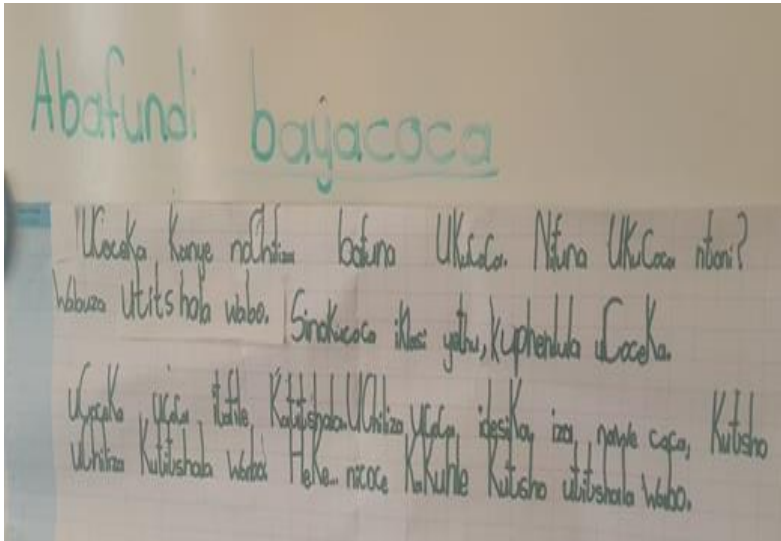 Abafundi bayacoca
UCoceka kanye noChiliza bafuna UKuCoca. Nifuna UKuCoca ntoni?
Wabuza Utitshala wabo. Sinokucoca iklasi yethu, kuphendula uCoceka.
UCoceka ucoca itafile Katitshala. UChiliza, ucoca, idesika, iza, nayo coca, Kutsho
UChiliza Kutitshala wabo. Heke... nicoce KaKuhle Kutsho utitshala Wabo.